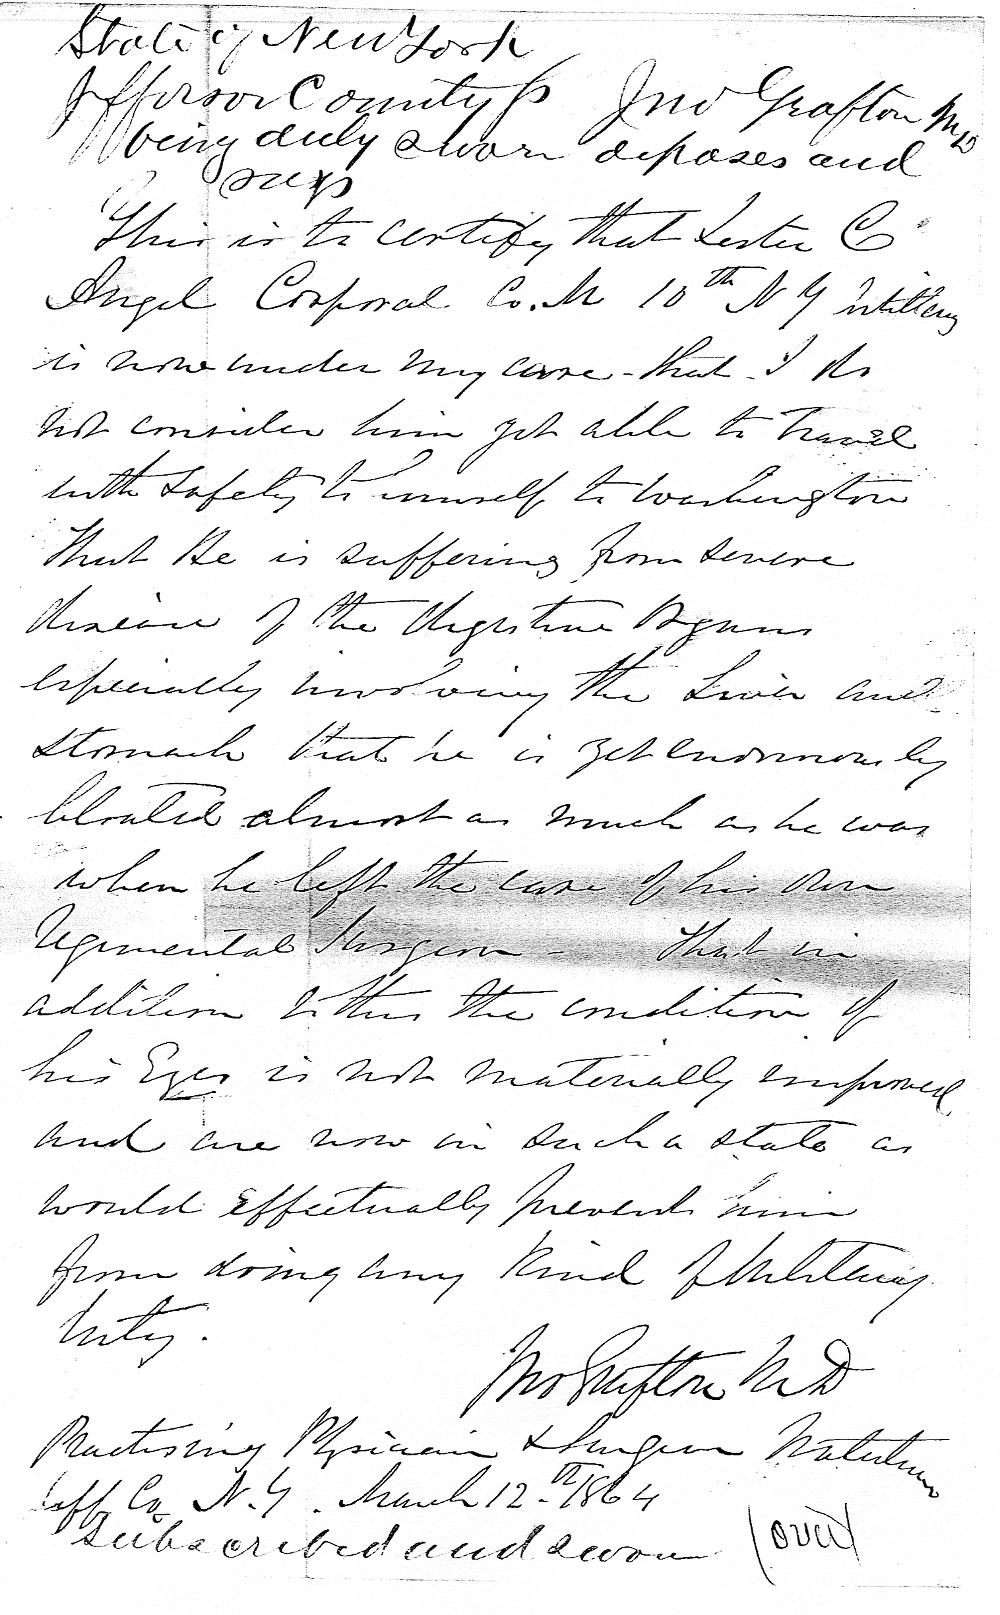 State of New York
Jefferson County ss Jno Grafton MD
being duly sworn deposes and
says
This is to certify that Lester C
Angel Corporal Co. M 10th N Y Artillery
is now under my care - that I do
not consider him yet able to travel
with safety to himself to Washington
that he is suffering from severe
disease of the digestive organs
especially involving the Liver and
stomach that he is yet enormously
bloated almost as much as he was
when he left the care of his own
Regimental Surgeon - that in
addition to this the condition of
his Eyes is not materially improved
and are now in such a state as
would effectually prevent him
from doing any kind of Military
duty.
Jno Grafton M D
Practising Physician & Surgeon Watertown
Jeff Co. N. Y. March 12th 1864
Subscribed and sworn (over)